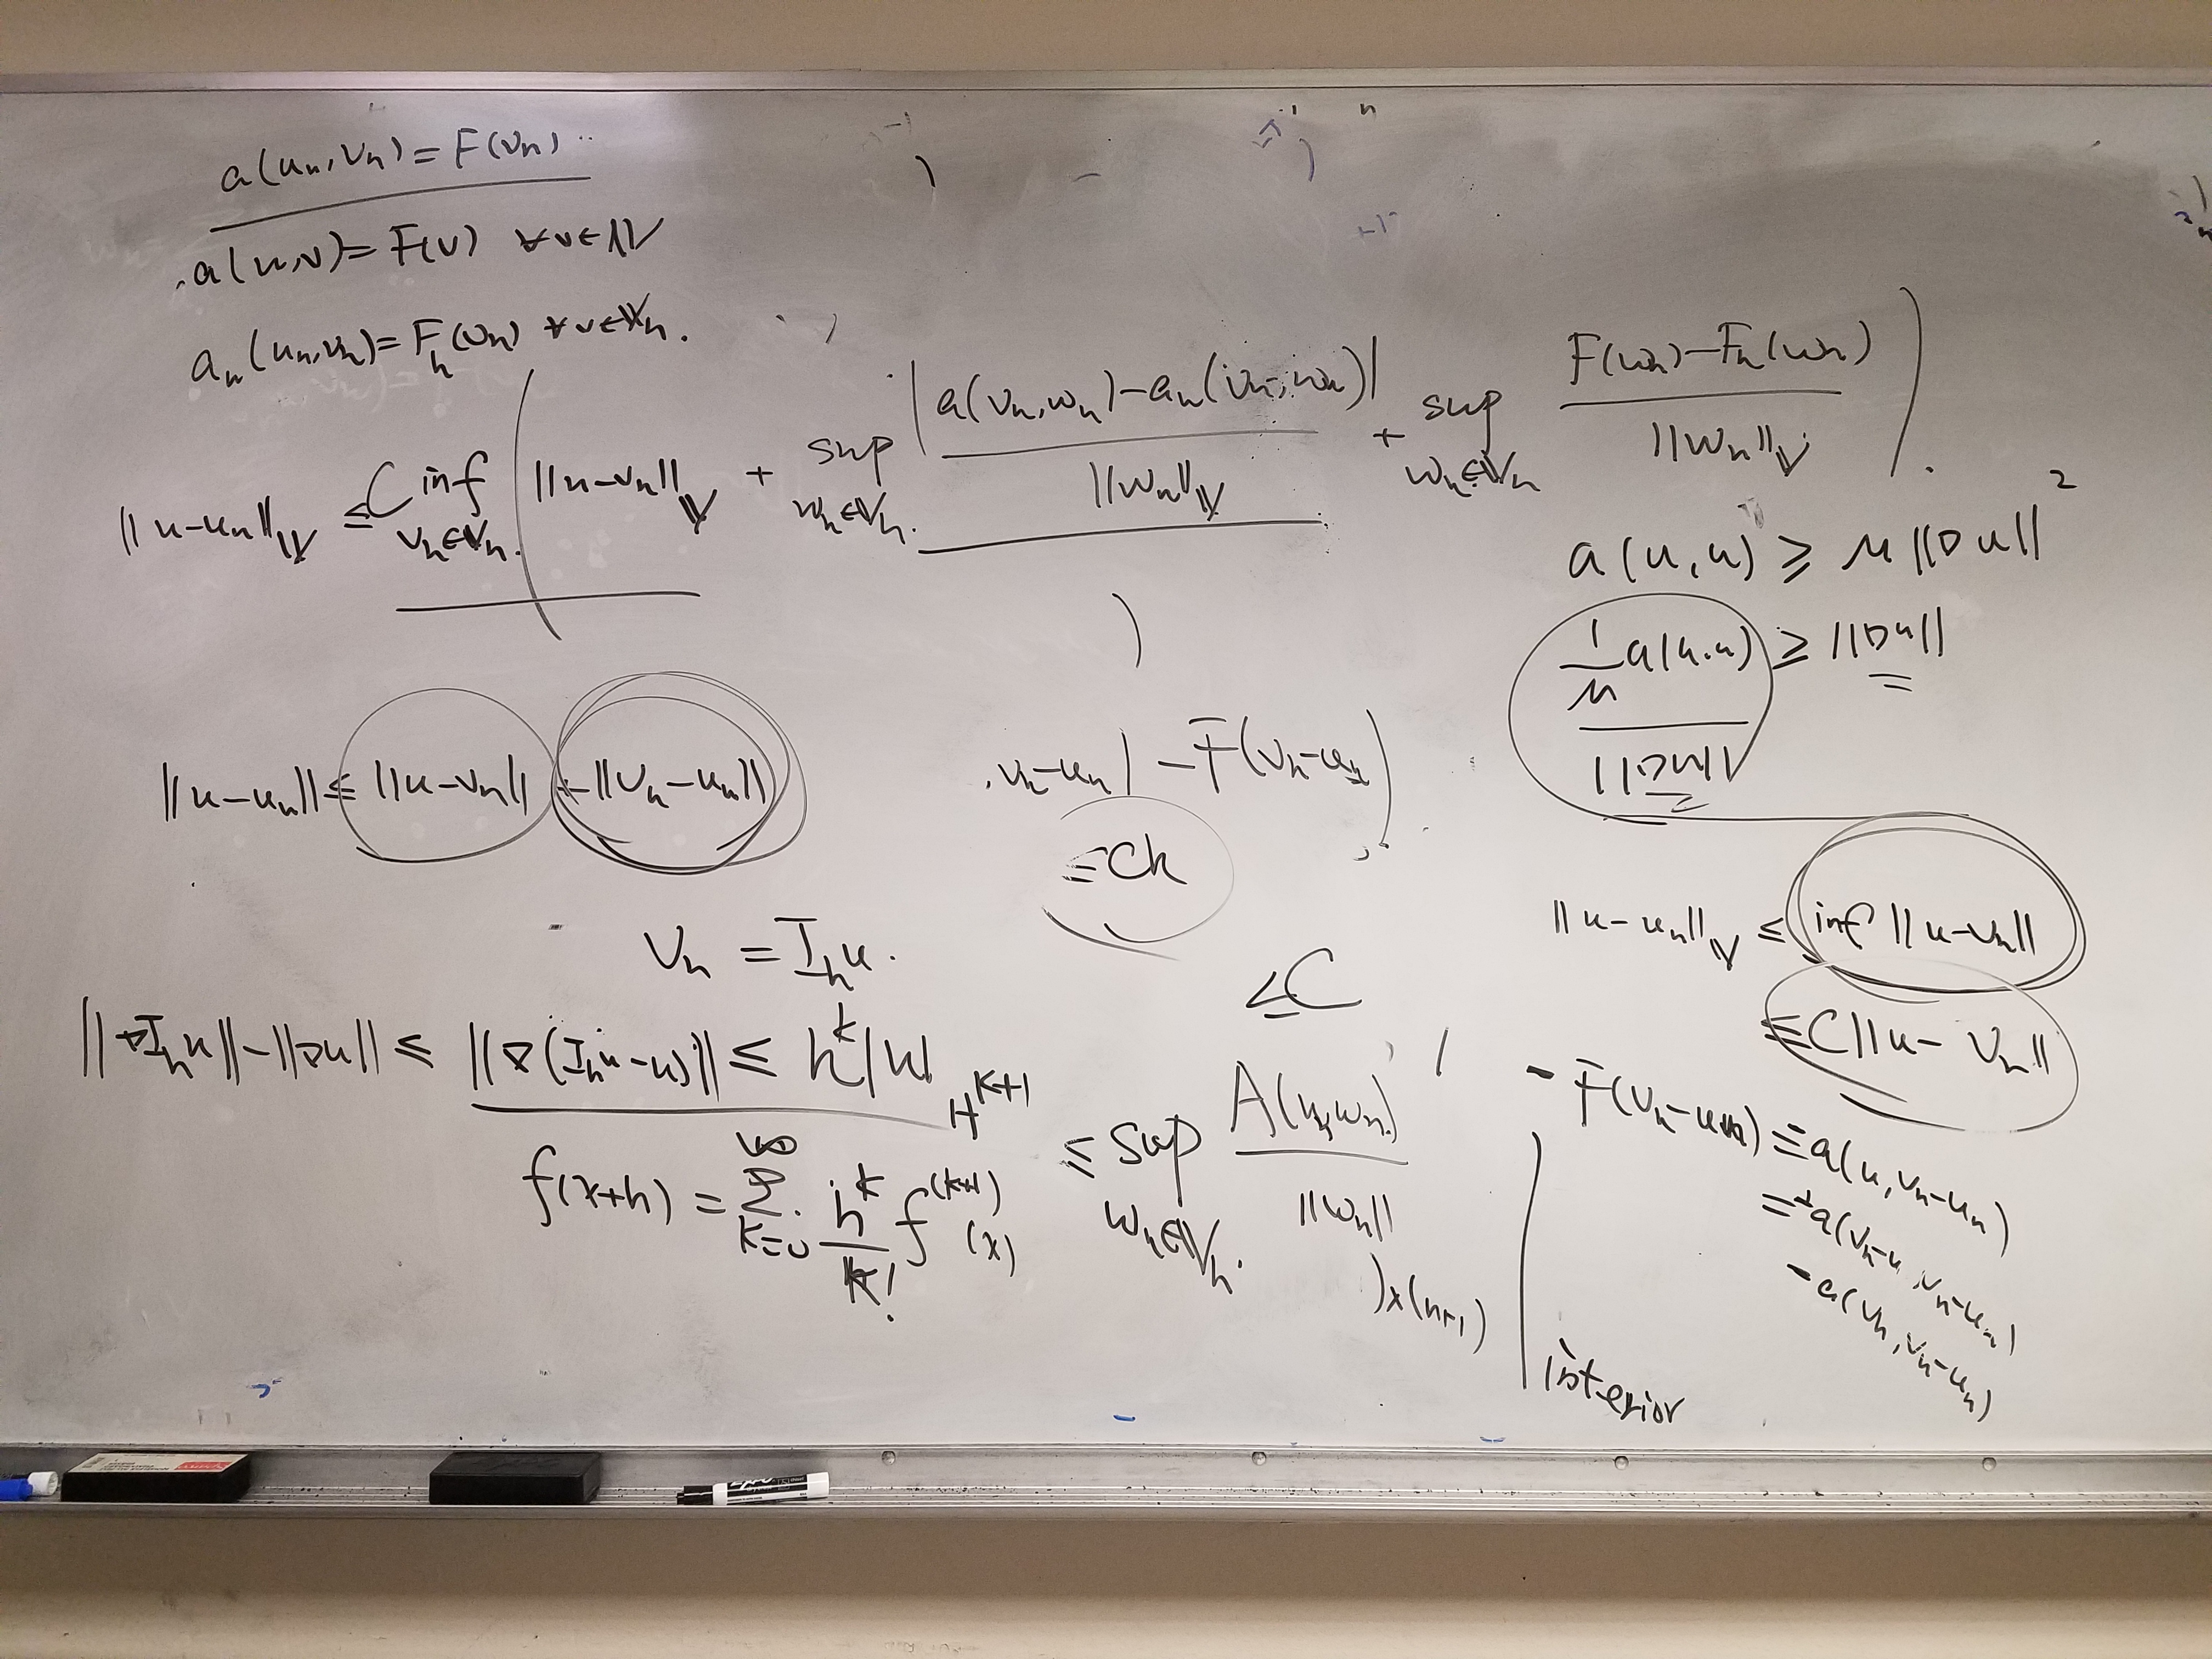 a(uₕ,vₕ) = F(vₕ)
a(u,v) = F(v) ∀v∈𝕍
aₕ(uₕ,vₕ) = Fₕ(vₕ) ∀v∈𝕍ₕ.
‖u-uₕ‖_𝕍 ≤ C inf_{vₕ∈𝕍ₕ} ( ‖u-vₕ‖_𝕍 + sup_{wₕ∈𝕍ₕ} |a(vₕ,wₕ)-aₕ(vₕ,wₕ)| / ‖wₕ‖_𝕍 + sup_{wₕ∈𝕍ₕ} F(wₕ)-Fₕ(wₕ) / ‖wₕ‖_𝕍 ).
a(u,u) ≥ μ‖∇u‖²
1/μ a(u,u) / ‖∇u‖ ≥ ‖∇u‖
‖u-uₕ‖ ≤ ‖u-vₕ‖ + ‖vₕ-uₕ‖
vₕ-uₕ) - F(vₕ-uₕ)
≤ Ch
‖u-uₕ‖_𝕍 ≤ inf ‖u-vₕ‖
≤ C‖u-vₕ‖
vₕ = Iₕu.
≤ C
‖∇Iₕu‖-‖∇u‖ ≤ ‖∇(Iₕu-u)‖ ≤ hᵏ|u|_{H^{k+1}}
≤ sup_{wₕ∈𝕍ₕ} A(u,wₕ) / ‖wₕ‖
f(x+h) = Σ_{k=0}^{∞} hᵏ/k! f^{(k+1)}(x)
)x(n+1)
- F(vₕ-uₕ) = a(u,vₕ-uₕ)
= +a(vₕ-u,vₕ-uₕ)
-a(vₕ,vₕ-uₕ)
interior
EXPO